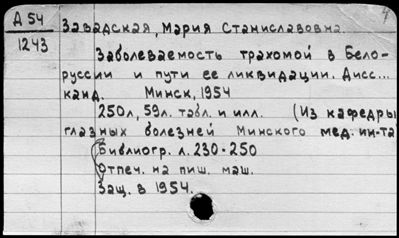 Д 54
1243
4
Завадская, Мария Станиславовна.
Заболеваемость трахомой в Бело-
руссии и пути ее ликвидации. Дисс...
канд. Минск, 1954
250л, 59л. табл. и илл. (Из кафедры
глазных болезней Минского мед. ин-та
Библиогр. л. 230-250
Отпеч. на пиш. маш.
Защ. в 1954.